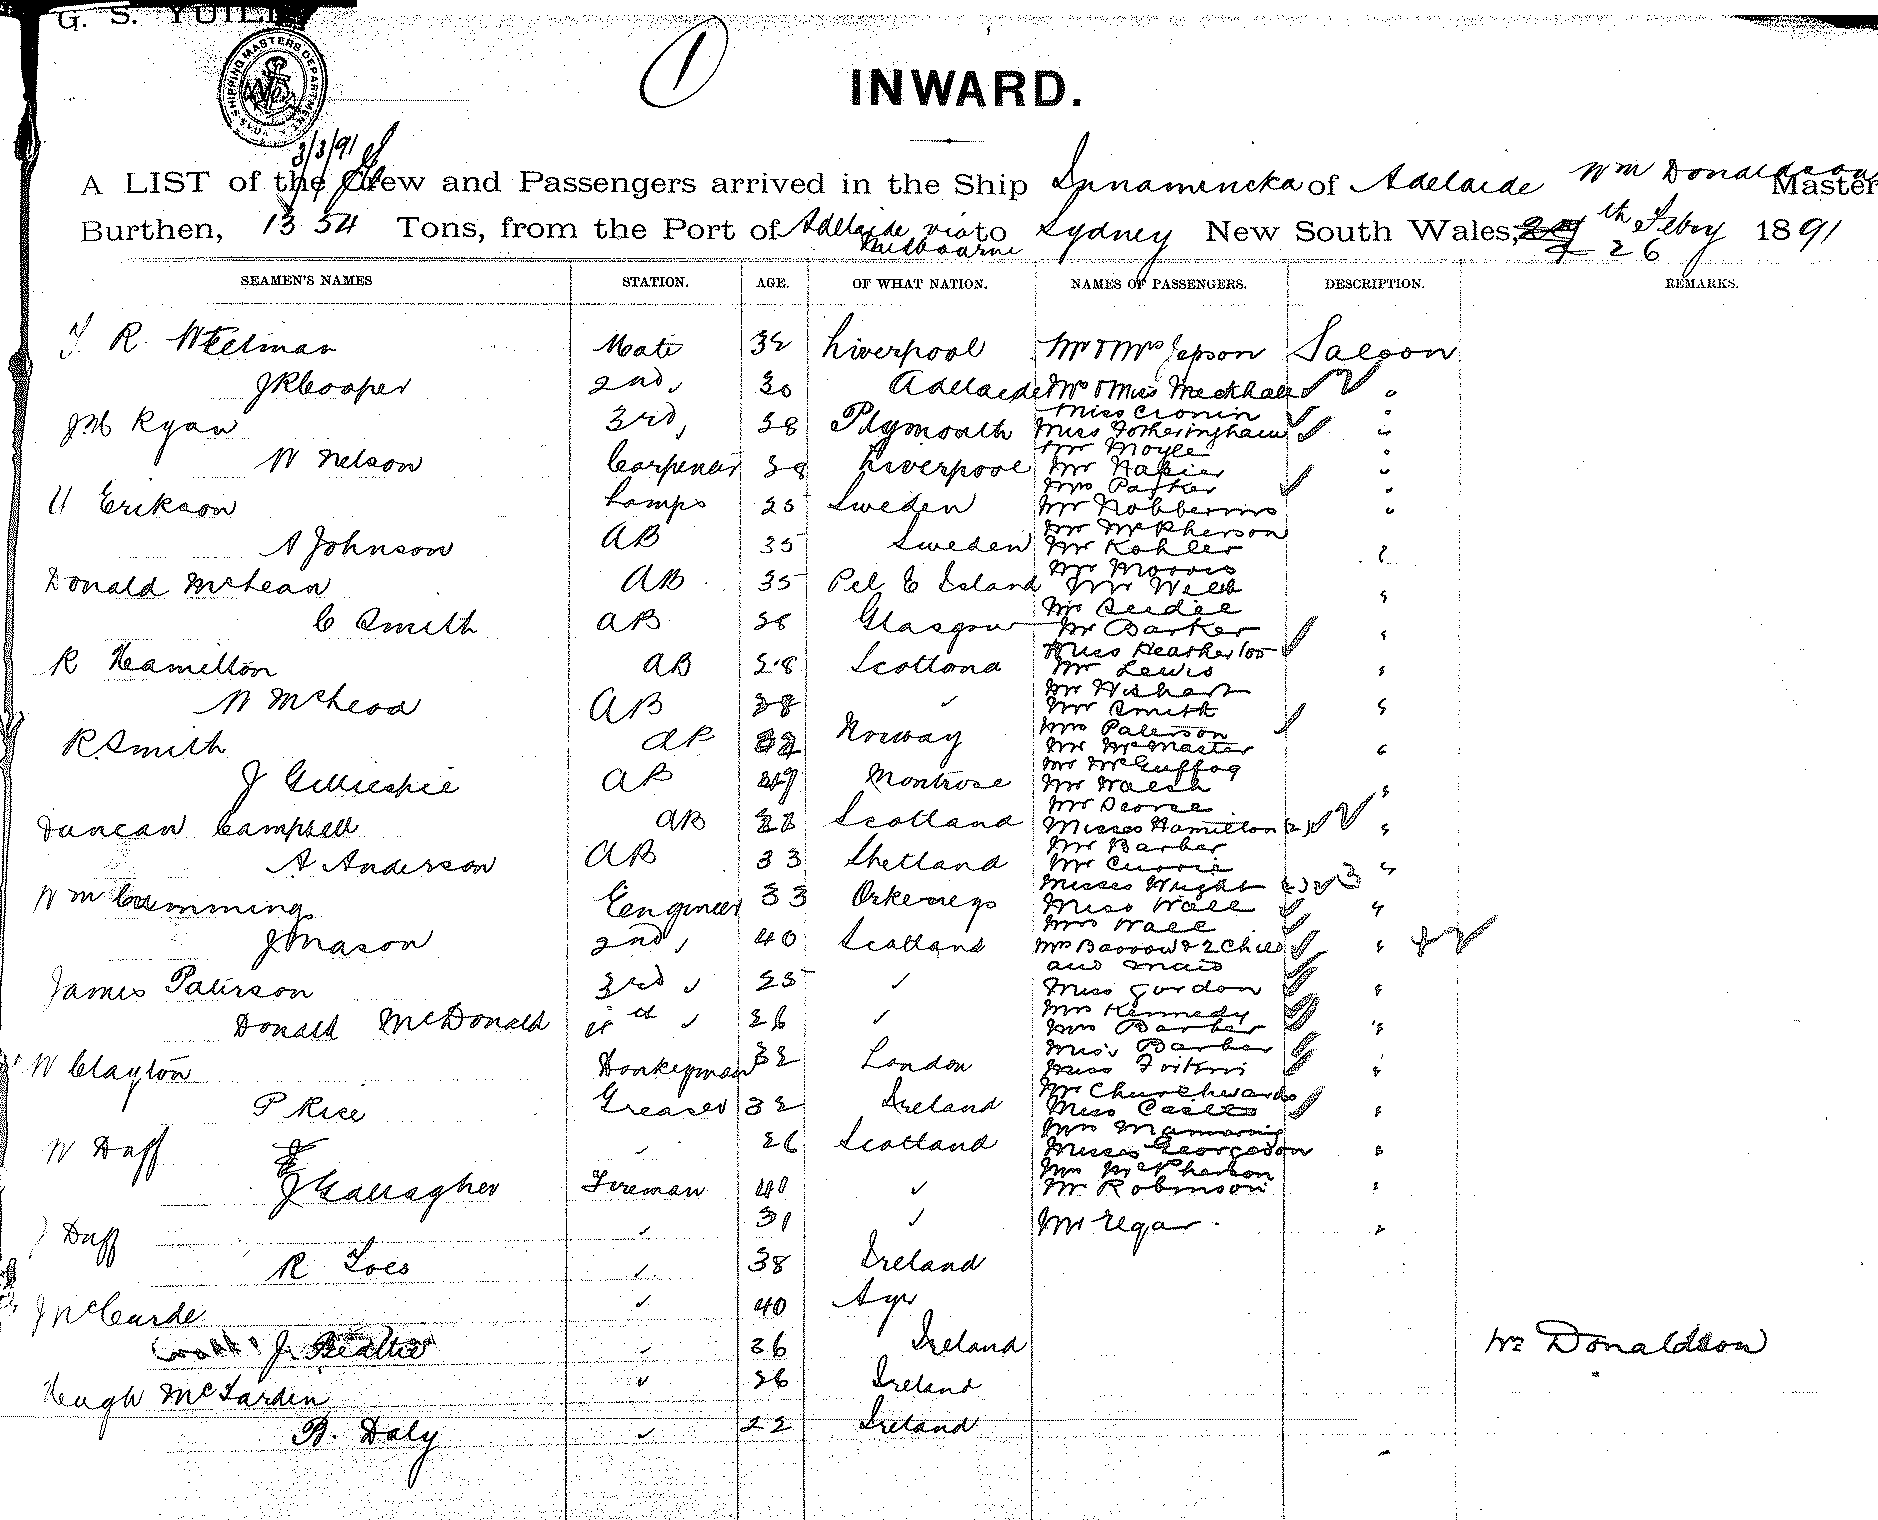 G. S. YUILL
SHIPPING MASTERS DEPARTMENT N.S.W.
1
INWARD.
3/3/91
A LIST of the Crew and Passengers arrived in the Ship Innamincka of Adelaide Wm Donaldson Master
Burthen, 1354 Tons, from the Port of Adelaide via Melbourne to Sydney New South Wales, 26th Febry 1891
SEAMEN'S NAMES STATION. AGE. OF WHAT NATION. NAMES OF PASSENGERS. DESCRIPTION. REMARKS.
R Mate 32 Liverpool Mr & Mrs Jepson Saloon
J R Cooper 2nd, 30 Adelaide & Miss
Miss Cronin
Ryan 3rd, 28 Plymouth Miss Fotheringham
Mr Moyle
W Nelson Carpenter 38 Liverpool Mr Napier
Mrs Parker
Erikson Lamps 25 Sweden Mr
Mr McPherson
A Johnson AB 35 Sweden Mr Kohler
Mr Morris
Donald McLean AB 35 Island Mr Webb
Mr
C Smith AB 26 Glasgow Mr Barker
Miss
R Hamilton AB 28 Scotland Mr Lewis
Mr Wishart
W McLeod AB 38 Mr Smith
Mrs Paterson
R Smith AB Norway Mr McMaster
Mr McGuffog
J Gillieshie AB Montrose Mr Walsh
Mr George
Duncan Campbell AB Scotland Misses Hamilton (2)
Mr Barber
A Anderson AB 33 Shetland Mr Currie
Misses Wright (2) 3
Wm Cummings Engineer 33 Orkeneys Miss Wall
Mrs Wall
J Mason 2nd, 40 Scotland Mrs Barrow & 2 Child
and maid
James Paterson 3rd 25 Miss Gordon
Mrs Kennedy
Donald McDonald 26 Mrs Barber
Miss Barber
W Clayton Donkeyman 32 London Miss
Mr Churchward
P Rice Greaser 32 Ireland Miss
Mrs
W Duff 26 Scotland Misses Georgeson
Mrs McPherson
J Gallagher Fireman 40 Mr Robinson
Duff 31 Mr Egar
R 38 Ireland
J McCurde 40 Ayr
J 36 Ireland Wm Donaldson
Hugh McLarden 26 Ireland
B. Daly 22 Ireland